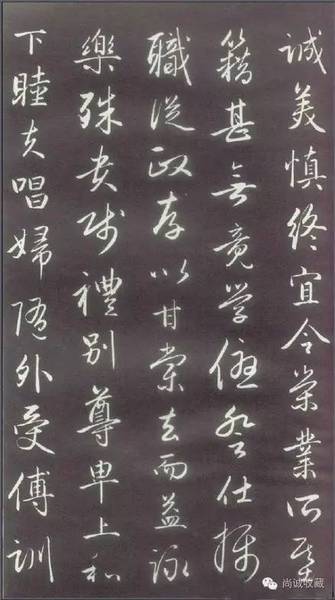 誠美慎終宜令榮業所基
籍甚無竟學優登仕攝
職從政存以甘棠去而益詠
樂殊貴賤禮別尊卑上和
下睦夫唱婦隨外受傅訓
尚诚收藏